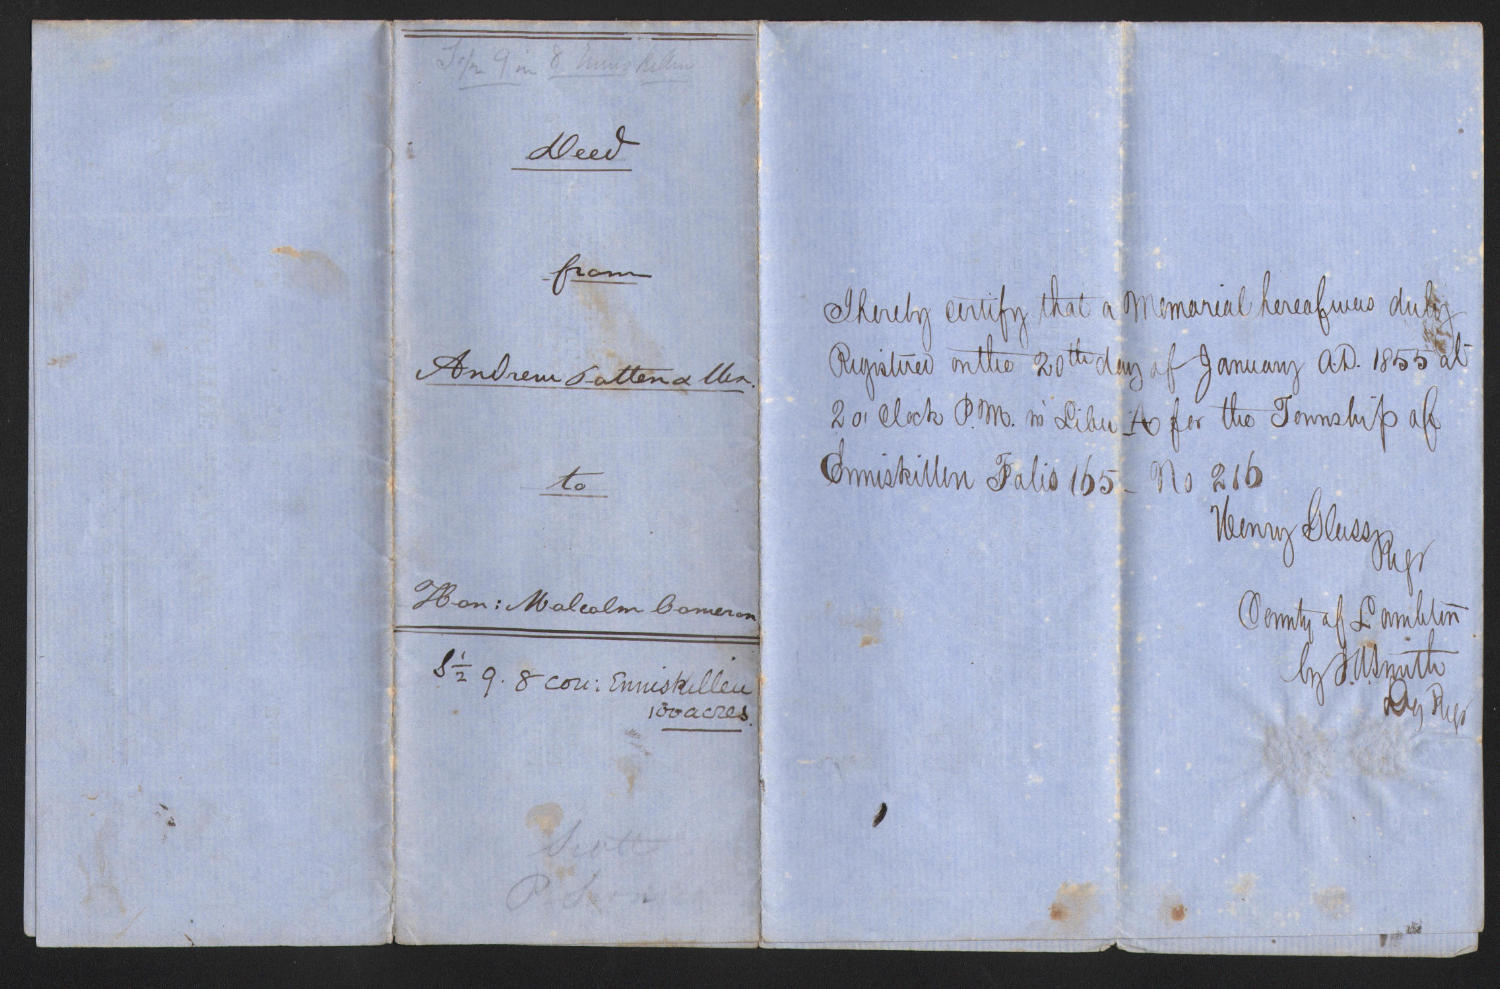 9 in 8 Enniskillen
Deed
from
Andrew Patten & Ux.
to
Hon: Malcolm Cameron
S ½ 9. 8 con: Enniskillen
100 acres.
Scott
I hereby certify that a Memorial hereof was duly
Registered on the 20th day of January A.D. 1855 at
2 o, Clock P.M. in Liber A for the Township of
Enniskillen Folio 165 - No 216
Henry Glass
Regr
County of Lambton
by Smith
Dy Regr